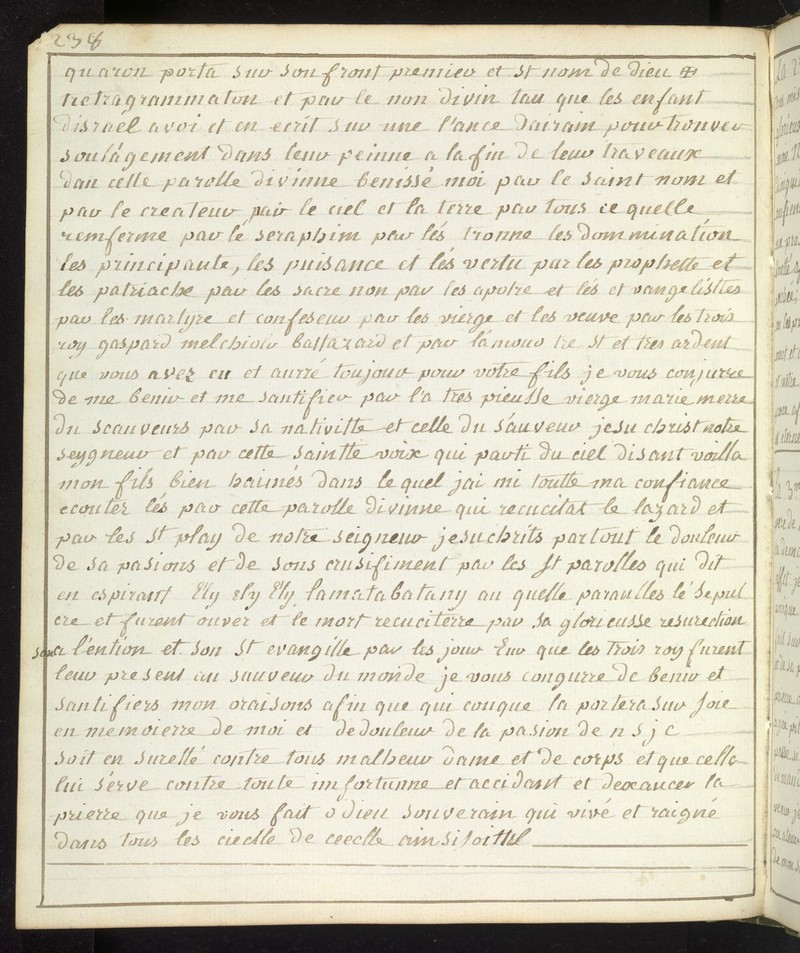 238
quaron porta sur son front premier et st nom de dieu ✠
tretragrammaton et par le non divin tau que les enfant
disraël avoi et en ecrit sur une l'ance dairain pour trouver
soulagement dans leur peinne a la fin de leur traveaux
dan celle parolle divinne benissé moi par le saint nom et
par le createur pair le ciel et la terre par tous ce quelle
remferme par lé seraphim par lés tronne les dommination
les principaute, les puisance et lés vertu par les prophette et
les patriache par les sacre non par les apotre et lés et vangelistes
par les martyre et confeseur par les vierge et les veuve par les trois
roy gaspard melchiolr baltazard et par lámour tre st et tres ardent
que vous avez eu et aurré toujour pour votre fils je vous conjurre
de me benir et me santifier par l'a tres pieusse vierge marie merre
du scauveurs par sa nativitte et celle du sáuveur jesu christ notre
seygneur et par cette saintte voix qui parti du ciel disant voilla
mon fils bien haimés dans le quel jai mi toutte ma confiance
ecoutez lés par cette parolle divinne qui recucitat le lazard et
par les st play de notre seigneur jesuchrits partout le douleur
de sa pasions et de sons crusifiment par les st parolles qui dit
en espirant Ely ely Ely lamatabatany au quelle paraulles lé sepul
cre et furent ouver et le mort recuciterre par sa glorieusse resurection
sona l'ention et son st evangille par les jour Eur que les trois roy furent
leur present au sauveur du monde je vous congurre de benir et
santifiers mon oraisons afin que qui conque la portera sur soie
en memoierre de moi et de douleur de la pasion de n s j c
soit en suretté contre tous malheur dame et de corps et que cella
lui sérve contre toute imfortunne et accidant et dexaucer la
prierre que je vous fait o dieu souverain qui vivé et raigné
dans tous les cieclle de ceeclle ainsi soittil